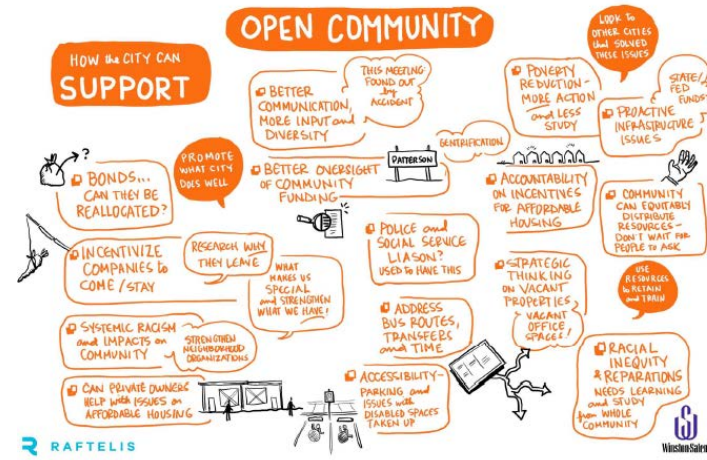 OPEN COMMUNITY
HOW the CITY CAN
SUPPORT
?
BONDS...
CAN THEY BE
REALLOCATED?
PROMOTE
WHAT CITY
DOES WELL
INCENTIVIZE
COMPANIES to
COME/STAY
RESEARCH WHY
THEY LEAVE
WHAT
MAKES US
SPECIAL
and STRENGTHEN
WHAT WE HAVE!
SYSTEMIC RACISM
and IMPACTS on
COMMUNITY
STRENGTHEN
NEIGHBORHOOD
ORGANIZATIONS
CAN PRIVATE OWNERS
HELP with ISSUES on
AFFORDABLE HOUSING
BETTER
COMMUNICATION,
MORE INPUT and
DIVERSITY
THIS MEETING
FOUND OUT
by
ACCIDENT
BETTER OVERSIGHT
OF COMMUNITY
FUNDING
PATTERSON
GENTRIFICATION
POLICE and
SOCIAL SERVICE
LIASON?
USED to HAVE THIS
ADDRESS
BUS ROUTES,
TRANSFERS
and TIME
ACCESSIBILITY-
PARKING and
ISSUES with
DISABLED SPACES
TAKEN UP
POVERTY
REDUCTION-
MORE ACTION
and LESS
STUDY
LOOK to
OTHER CITIES
that SOLVED
THESE ISSUES
STATE/
FED
FUNDS
PROACTIVE
INFRASTRUCTURE
ISSUES
ACCOUNTABILITY
ON INCENTIVES
FOR AFFORDABLE
HOUSING
COMMUNITY
CAN EQUITABLY
DISTRIBUTE
RESOURCES-
DON'T WAIT FOR
PEOPLE to ASK
STRATEGIC
THINKING
ON VACANT
PROPERTIES
VACANT
OFFICE
SPACES!
USE
RESOURCES
to RETAIN
and TRAIN
RACIAL
INEQUITY
& REPARATIONS
NEEDS LEARNING
and STUDY
from WHOLE
COMMUNITY
RAFTELIS
Winston-Salem